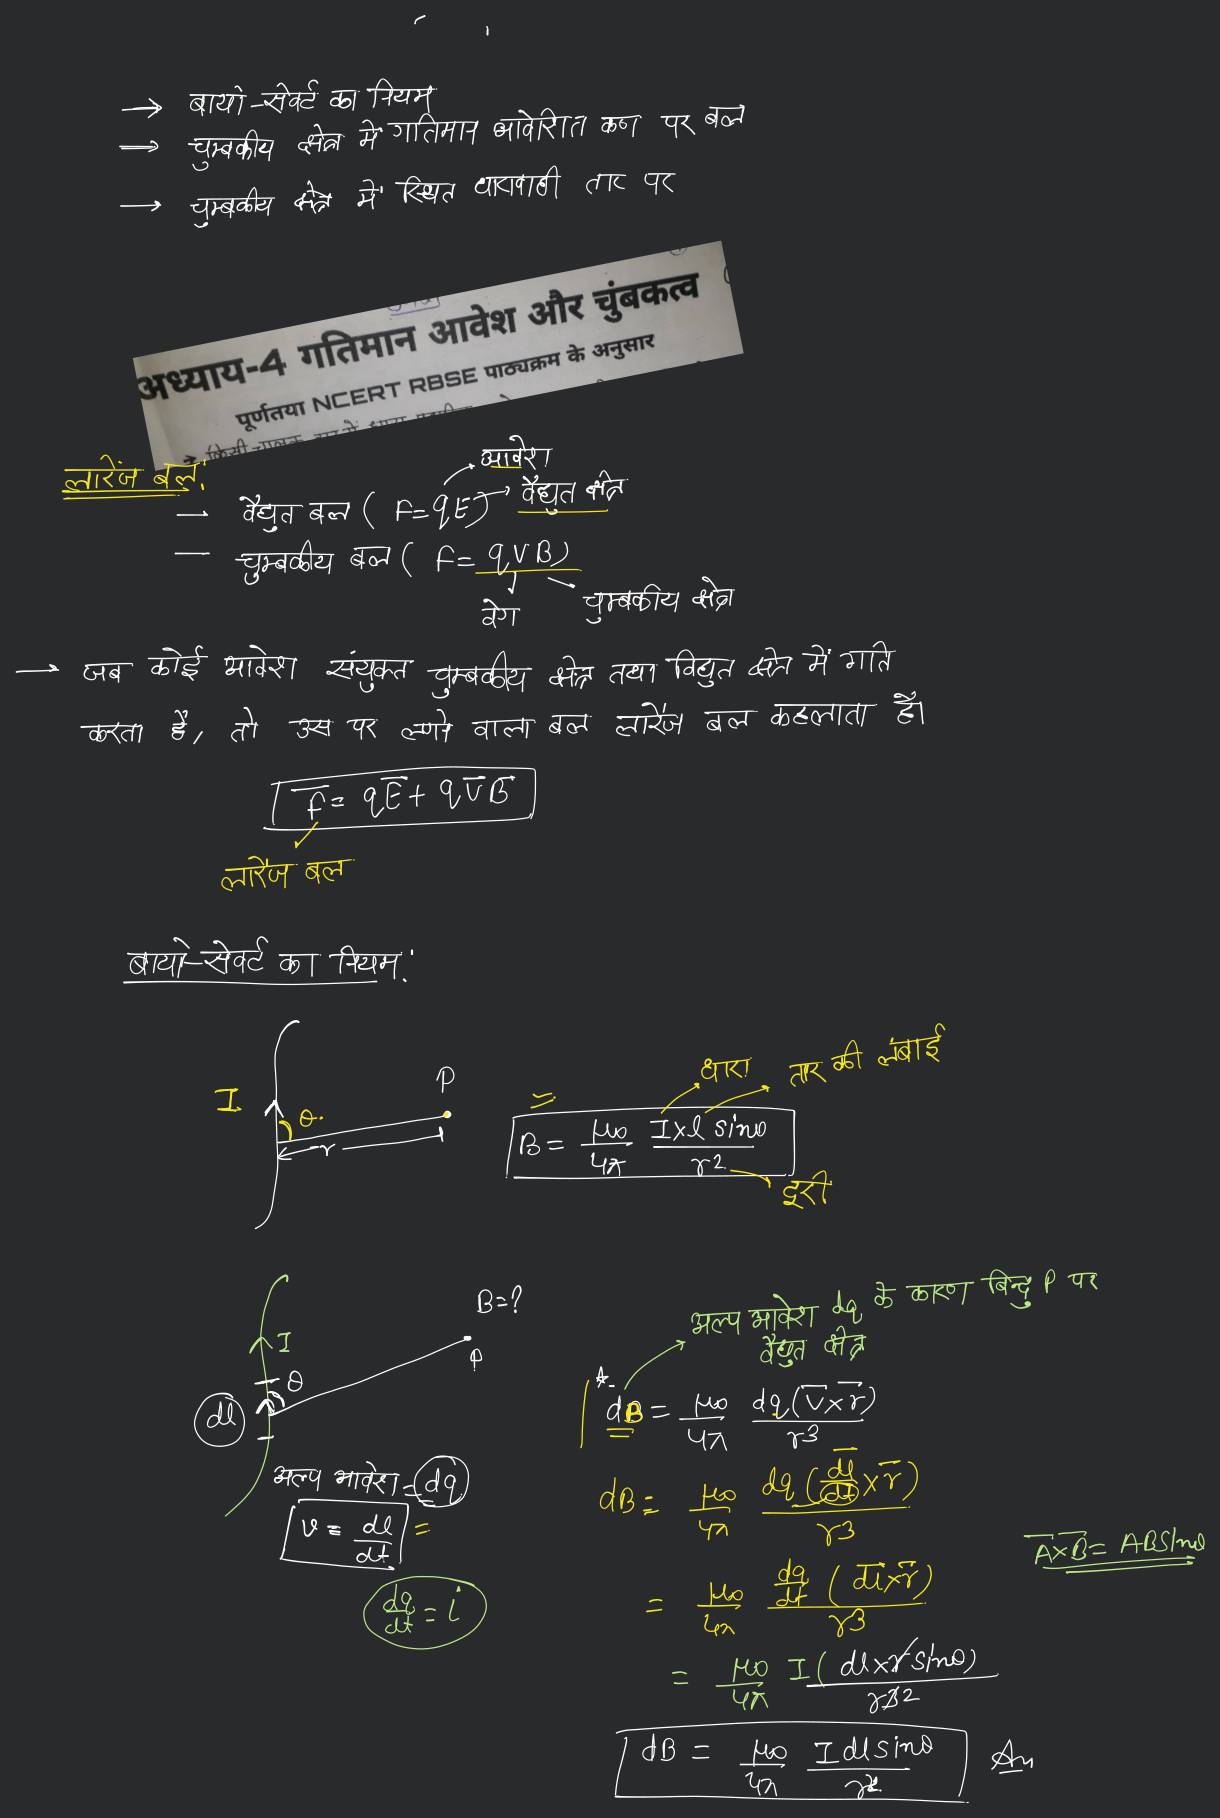 → बायो-सेवर्ट का नियम
→ चुम्बकीय क्षेत्र में गतिमान आवेशित कण पर बल
→ चुम्बकीय क्षेत्र में स्थित धारावाही तार पर
अध्याय-4 गतिमान आवेश और चुंबकत्व
पूर्णतया NCERT RBSE पाठ्यक्रम के अनुसार
लारेंज बल:
आवेश
— वैद्युत बल ( F=qE) → वैद्युत क्षेत्र
— चुम्बकीय बल ( F= qVB)
वेग चुम्बकीय क्षेत्र
→ जब कोई आवेश संयुक्त चुम्बकीय क्षेत्र तथा विद्युत क्षेत्र में गति
करता है, तो उस पर लगने वाला बल लारेंज बल कहलाता है।
f̅ = qE̅ + qV̅B̅
लारेंज बल
बायो-सेवर्ट का नियम:
I θ r P
धारा तार की लंबाई
=
B = μ₀/4π I×l sinθ/r²
दूरी
B=?
I θ dl P
अल्प आवेश dq के कारण बिन्दु P पर
वैद्युत क्षेत्र
dB = μ₀/4π dq(V̅×r̅)/r³
अल्प आवेश = dq
v = dl/dt =
dq/dt = i
dB = μ₀/4π dq(d̅l̅/dt×r̅)/r³
A̅×B̅ = ABsinθ
= μ₀/4π dq/dt (d̅l̅×r̅)/r³
= μ₀/4π I(dl×r sinθ)/r³ 2
dB = μ₀/4π I dl sinθ/r² An